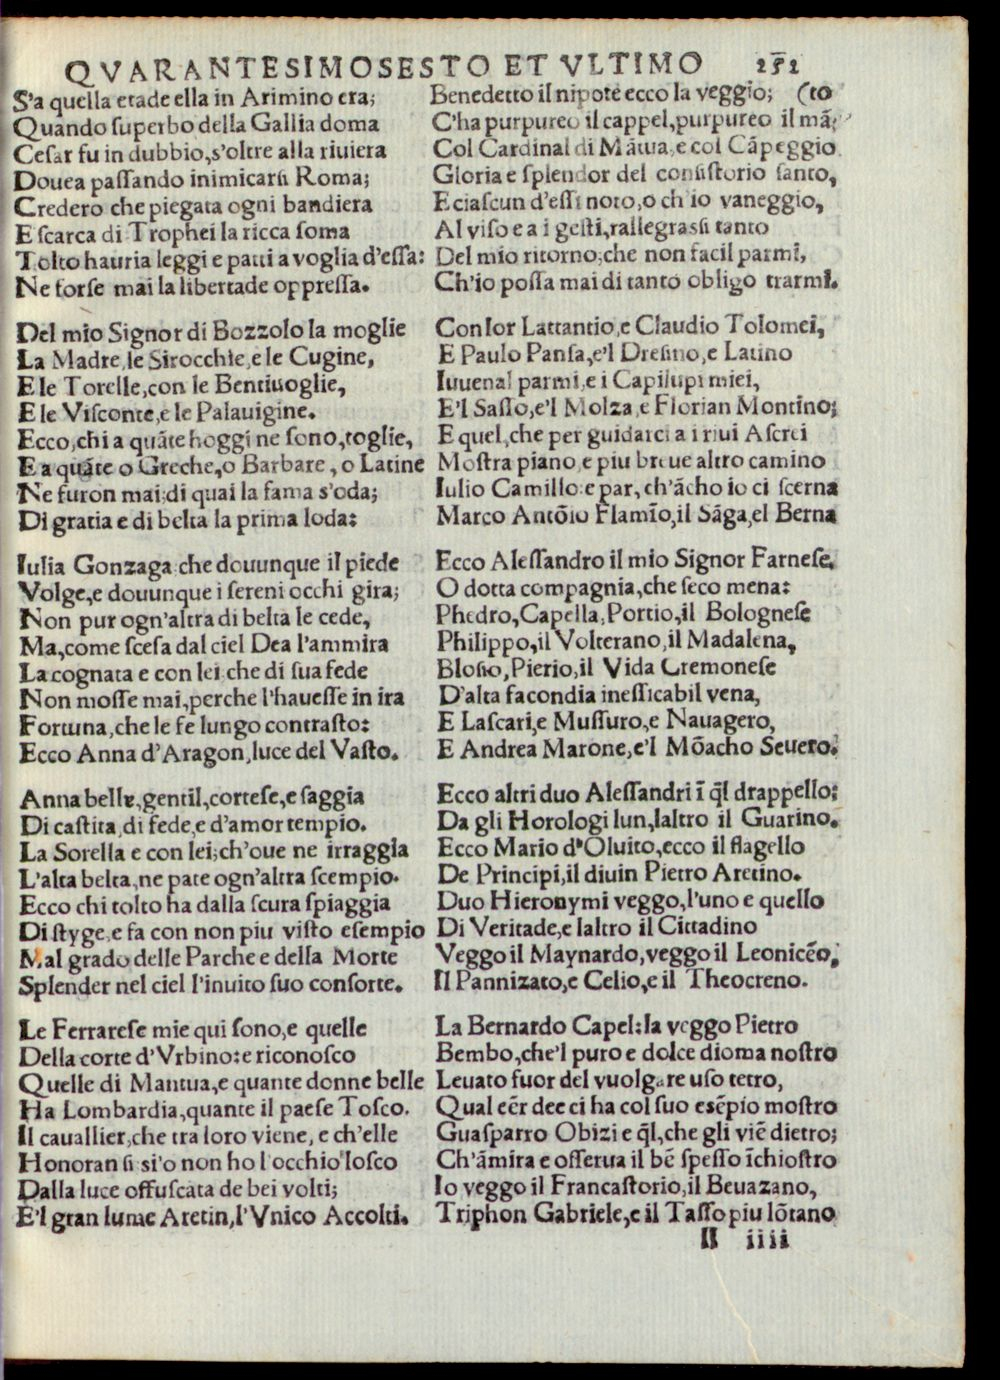 QVARANTESIMOSESTO ET VLTIMO 251
S'a quella etade ella in Arimino era;
Quando ſuperbo della Gallia doma
Ceſar fu in dubbio,s'oltre alla riuiera
Douea paſſando inimicarſi Roma;
Credero che piegata ogni bandiera
E ſcarca di Trophei la ricca ſoma
Tolto hauria leggi e patti a voglia d'eſſa:
Ne forſe mai la libertade oppreſſa.
Del mio Signor di Bozzolo la moglie
La Madre,le Sirocchie,e le Cugine,
E le Torelle,con le Bentiuoglie,
E le Viſconte,e le Palauigine.
Ecco,chi a quãte hoggi ne ſono,toglie,
E a quãte o Greche,o Barbare, o Latine
Ne furon mai;di quai la fama s'oda;
Di gratia e di belta la prima loda:
Iulia Gonzaga che douunque il piede
Volge,e douunque i ſereni occhi gira;
Non pur ogn'altra di belta le cede,
Ma,come ſceſa dal ciel Dea l'ammira
La cognata e con lei che di ſua fede
Non moſſe mai,perche l'haueſſe in ira
Fortuna,che le fe lungo contraſto:
Ecco Anna d'Aragon,luce del Vaſto.
Anna bella,gentil,corteſe,e ſaggia
Di caſtita,di fede,e d'amor tempio.
La Sorella e con lei;ch'oue ne irraggia
L'alta belta,ne pate ogn'altra ſcempio.
Ecco chi tolto ha dalla ſcura ſpiaggia
Di ſtyge e fa con non piu viſto eſempio
Mal grado delle Parche e della Morte
Splender nel ciel l'inuito ſuo conſorte.
Le Ferrareſe mie qui ſono,e quelle
Della corte d'Vrbino:e riconoſco
Quelle di Mantua,e quante donne belle
Ha Lombardia,quante il paeſe Toſco.
Il cauallier,che tra loro viene, e ch'elle
Honoran ſi si'o non ho l'occhio loſco
Dalla luce offuſcata de bei volti;
E'l gran lume Aretin,l'Vnico Accolti.
Benedetto il nipote ecco la veggio; (to
C'ha purpureo il cappel,purpureo il mã;
Col Cardinal di Mãtua,e col Cãpeggio
Gloria e ſplendor del conſiſtorio ſanto,
E ciaſcun d'eſſi noto,o ch'io vaneggio,
Al viſo e a i geſti,rallegraſſi tanto
Del mio ritorno;che non facil parmi,
Ch'io poſſa mai di tanto obligo trarmi.
Con lor Lattantio,e Claudio Tolomei,
E Paulo Panſa,e'l Dreſino,e Latino
Iuuenal parmi,e i Capilupi miei,
E'l Saſſo,e'l Molza,e Florian Montino;
E quel,che per guidarci a i riui Aſcrei
Moſtra piano e piu breue altro camino
Iulio Camillo e par, ch'ãcho io ci ſcerna
Marco Antõio Flamĩo,il Sãga,el Berna
Ecco Aleſſandro il mio Signor Farneſe.
O dotta compagnia,che ſeco mena:
Phedro,Capella,Portio,il Bologneſe
Philippo,il Volterano,il Madalena,
Bloſio,Pierio,il Vida Cremoneſe
D'alta facondia ineſſicabil vena,
E Laſcari,e Muſſuro,e Nauagero,
E Andrea Marone,e'l Mõacho Seuero.
Ecco altri duo Aleſſandri ĩ q̃l drappello;
Da gli Horologi lun,laltro il Guarino.
Ecco Mario d'Oluito,ecco il flagello
De Principi,il diuin Pietro Aretino.
Duo Hieronymi veggo,l'uno e quello
Di Veritade,e laltro il Cittadino
Veggo il Maynardo,veggo il Leonicẽo,
Il Pannizato,e Celio,e il Theocreno.
La Bernardo Capel:la veggo Pietro
Bembo,che'l puro e dolce dioma noſtro
Leuato fuor del vuolgare uſo tetro,
Qual eẽr dee ci ha col ſuo esẽpio moſtro
Guaſparro Obizi e q̃l,che gli viẽ dietro;
Ch'ãmira e oſſerua il bẽ ſpeſſo ĩchioſtro
Io veggo il Francaſtorio,il Beuazano,
Triphon Gabriele,e il Taſſo piu lõtano
II iiii